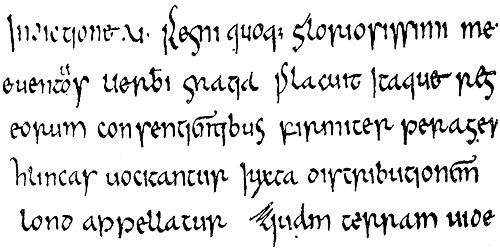 Indictione xi. Regni quoq; gloriosissimi me
euentos uerbi gratia Placuit Itaque reg
eorum consentientibus firmiter perager
hlincas uocitantur Iuxta distributionem
lond appellatur terram uide